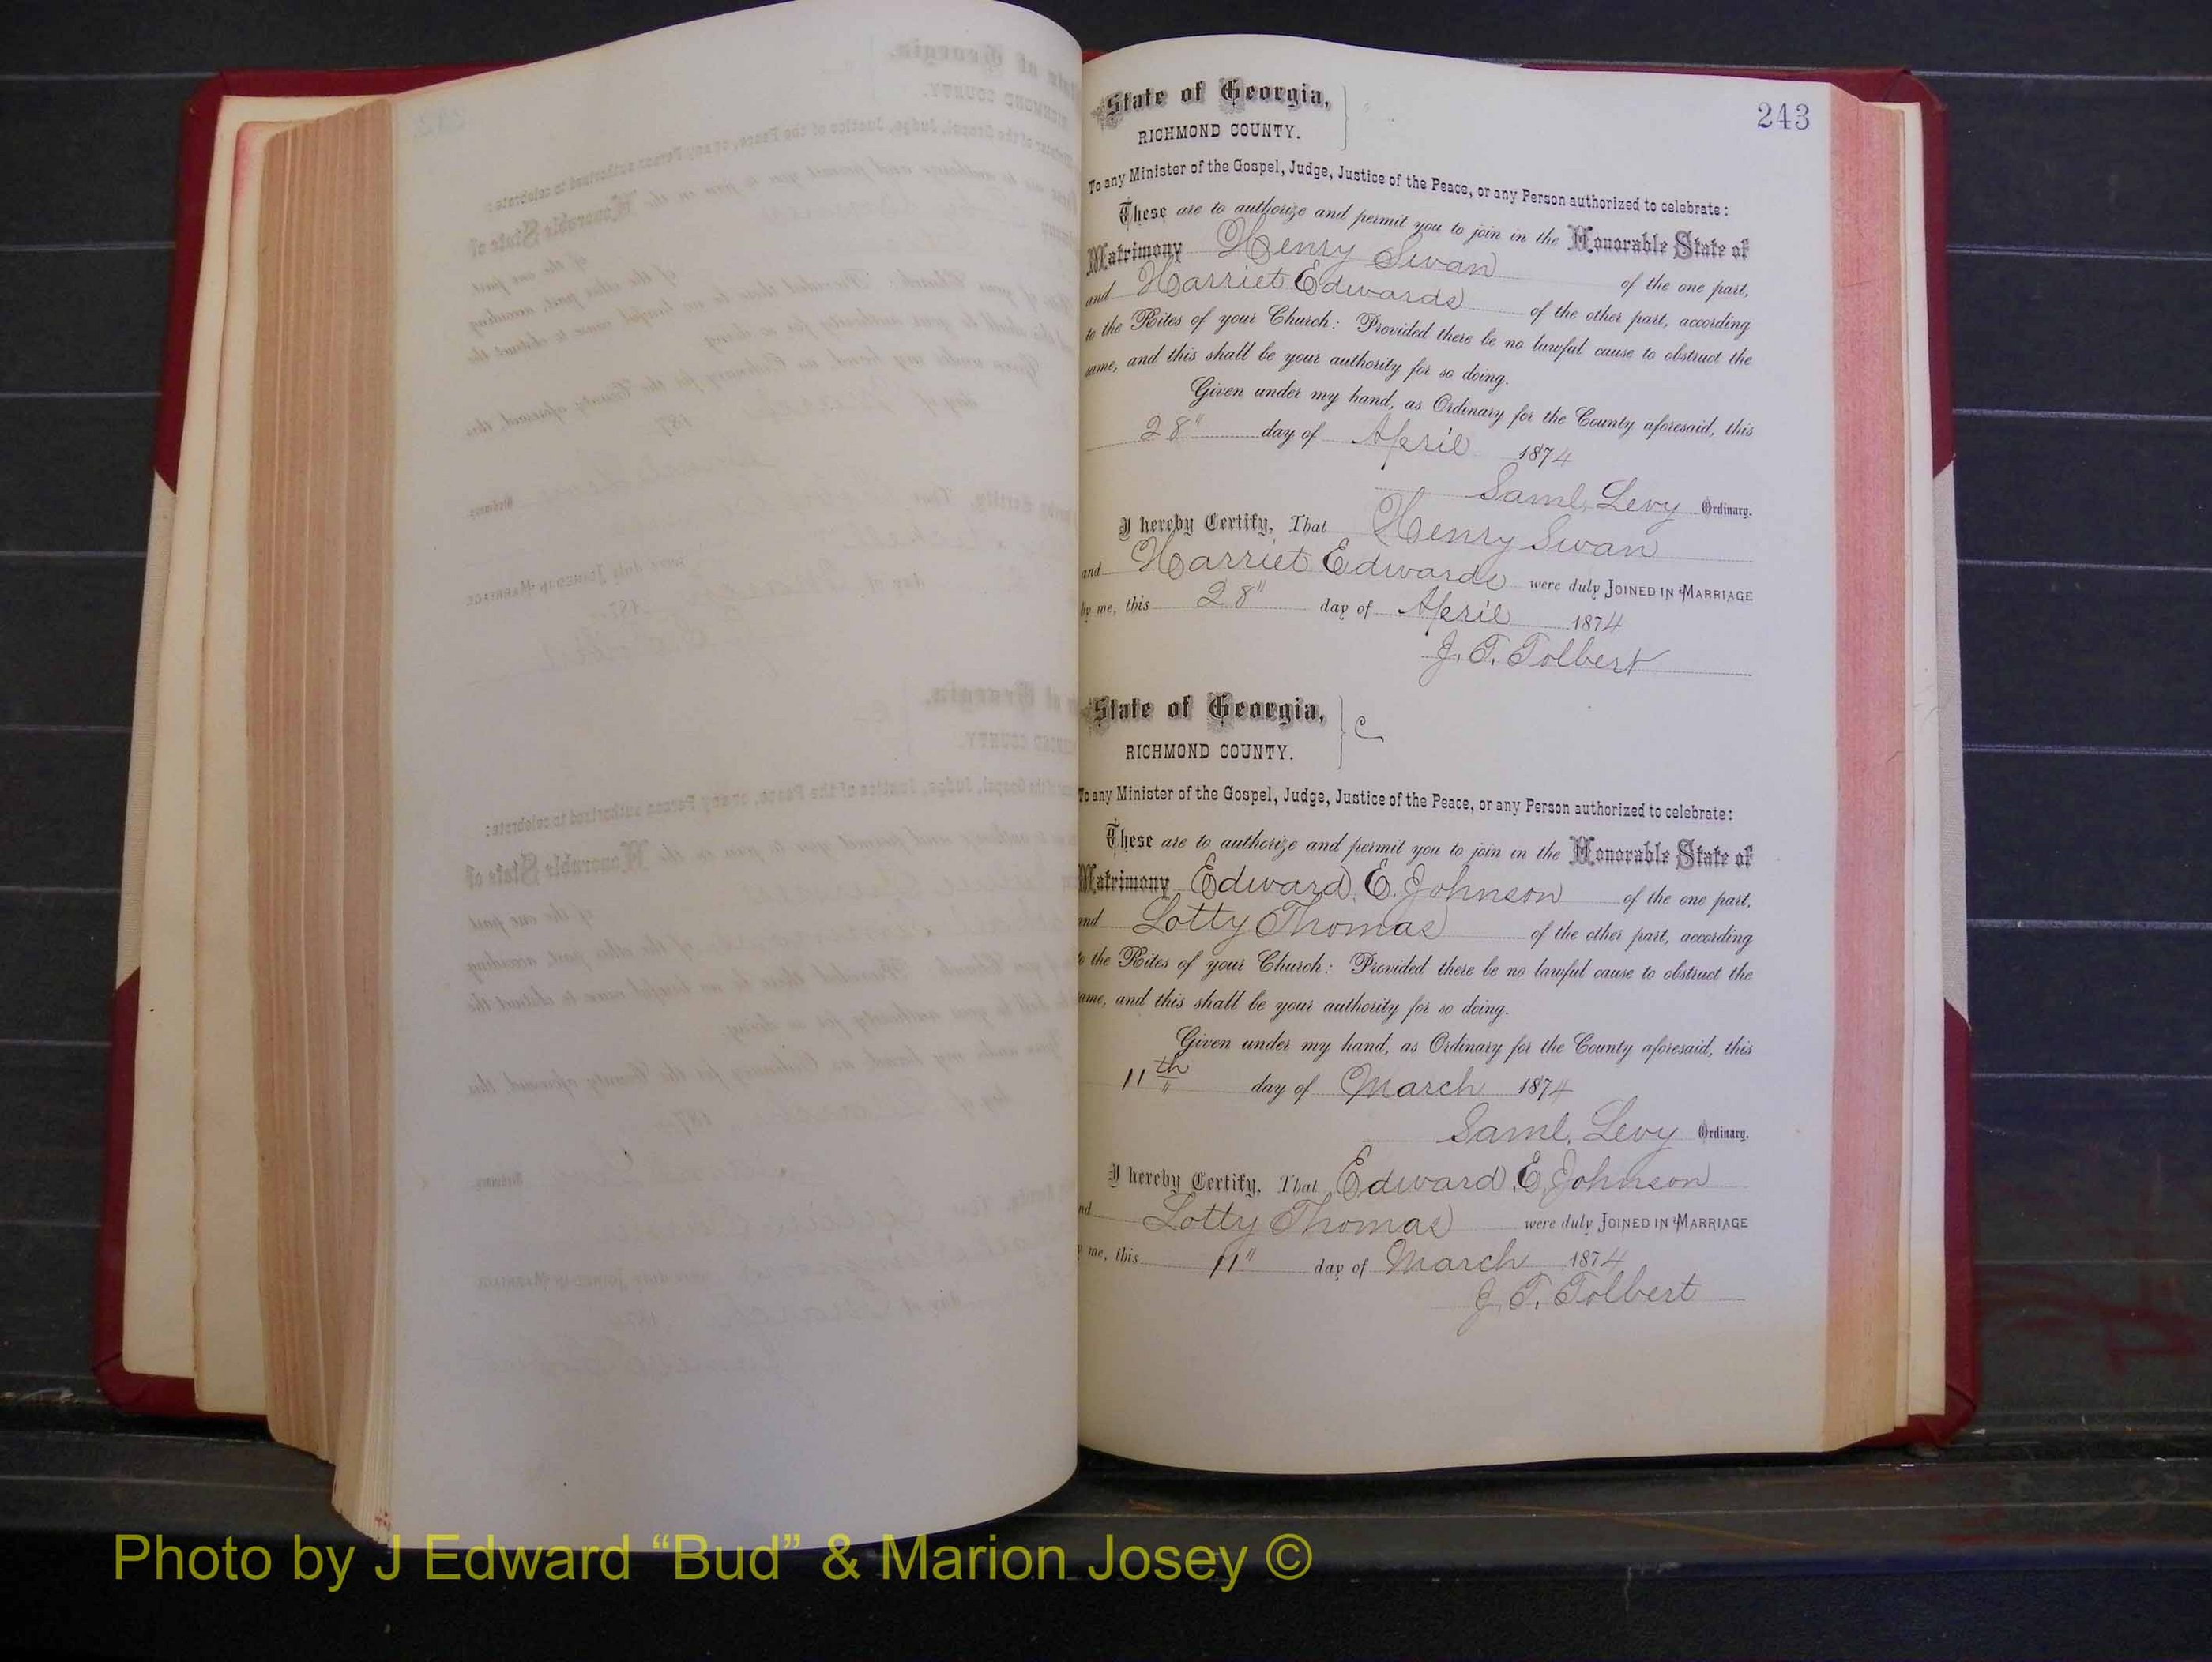 243
State of Georgia,
RICHMOND COUNTY.
To any Minister of the Gospel, Judge, Justice of the Peace, or any Person authorized to celebrate:
These are to authorize and permit you to join in the Honorable State of
Matrimony Henry Swan of the one part,
and Harriet Edwards of the other part, according
to the Rites of your Church: Provided there be no lawful cause to obstruct the
same, and this shall be your authority for so doing.
Given under my hand, as Ordinary for the County aforesaid, this
28" day of April 1874
Saml. Levy Ordinary.
I hereby Certify, That Henry Swan
and Harriet Edwards were duly JOINED IN MARRIAGE
by me, this 28" day of April 1874
J. T. Tolbert
State of Georgia,
RICHMOND COUNTY. C
To any Minister of the Gospel, Judge, Justice of the Peace, or any Person authorized to celebrate:
These are to authorize and permit you to join in the Honorable State of
Matrimony Edward. E. Johnson of the one part,
and Lotty Thomas of the other part, according
to the Rites of your Church: Provided there be no lawful cause to obstruct the
ame, and this shall be your authority for so doing.
Given under my hand, as Ordinary for the County aforesaid, this
11th day of March 1874
Saml. Levy Ordinary.
I hereby Certify, That Edward. E. Johnson
nd Lotty Thomas were duly JOINED IN MARRIAGE
y me, this 11" day of March 1874
J. T. Tolbert
Photo by J Edward “Bud” & Marion Josey ©